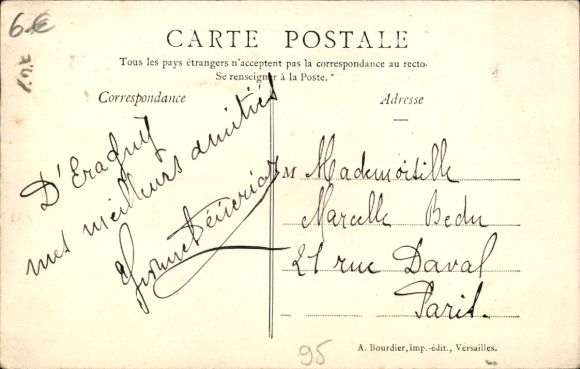 6.€
CARTE POSTALE
Tous les pays étrangers n'acceptent pas la correspondance au recto.
Se renseigner à la Poste.
Correspondance
Adresse
D'Eragny
mes meilleurs amitiés
Yvonne
M Mademoiselle
Marcelle Bedu
21 rue Daval
Paris.
95
A. Bourdier, imp.-édit., Versailles.